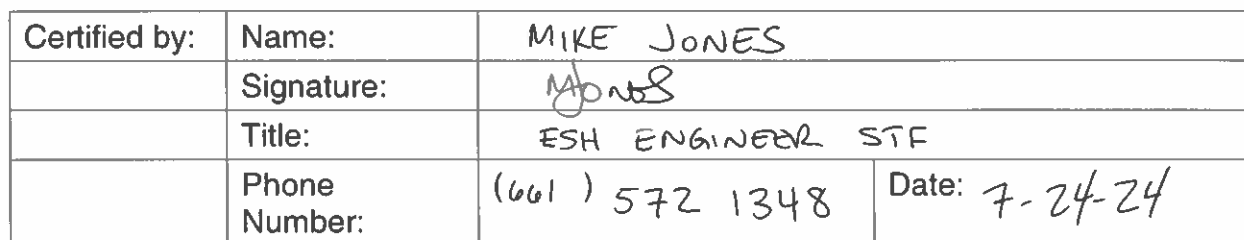 Certified by: Name: MIKE JONES
Signature: MJones
Title: ESH ENGINEER STF
Phone Number: (661) 572 1348 Date: 7-24-24